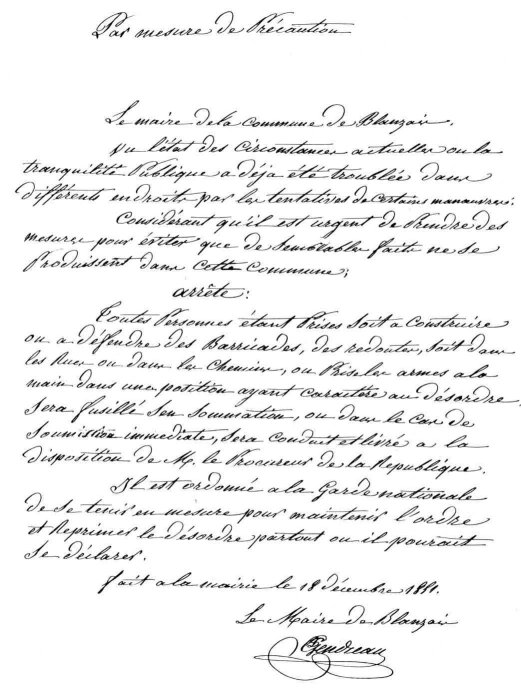 Par mesure de Précaution
Le maire de la commune de Blanzais.
vu l'état des circonstances actuelles ou la
tranquilité Publique a déja été troublée dans
différents endroits par les tentatives de certains manœuvres:
Considérant qu'il est urgent de Prendre des
mesures pour éviter que de semblables faits ne se
Produissent dans cette Commune;
arrête:
Toutes Personnes étant Prises soit a Construire
ou a défendre des Barricades, des redoutes, soit dans
les Rues ou dans les Chemins, ou Prises les armes a la
main dans une position ayant caractère au désordre
sera fusillé sen sommation, ou dans le cas de
soumission immediate, sera conduit et livré a la
disposition de M. le Procureur de la République.
Il est ordonné a la Garde nationale
de se tenir en mesure pour maintenir l'ordre
et Reprimer le désordre partout ou il pourait
se déclarer.
fait a la mairie le 18 décembre 1851.
Le Maire de Blanzais
Gendreau